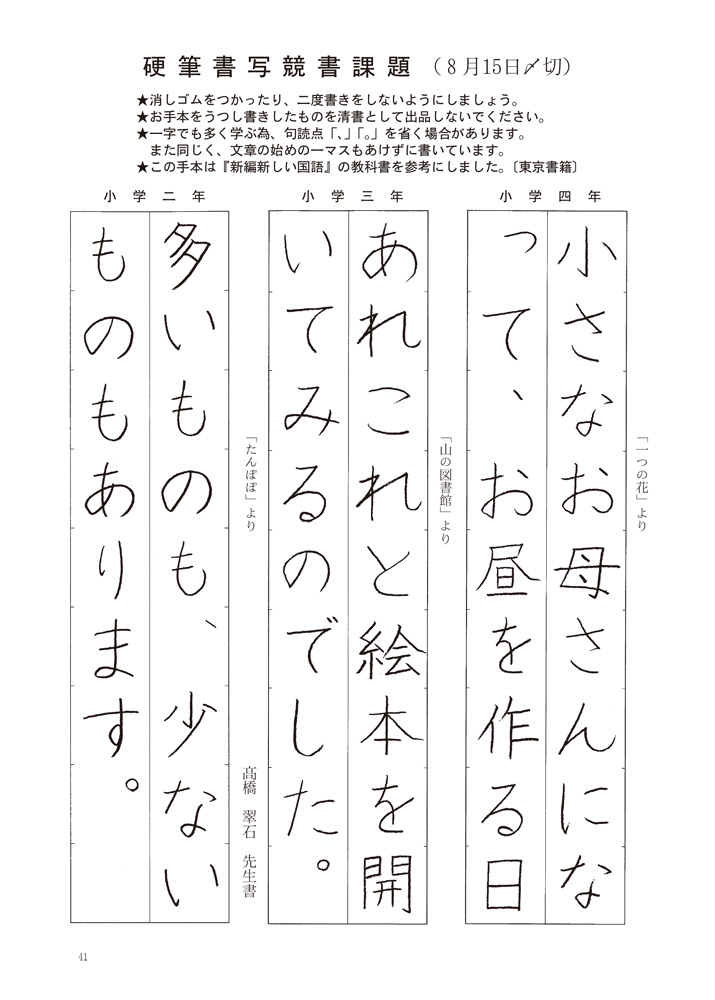 硬筆書写競書課題 （８月15日〆切）
★消しゴムをつかったり、二度書きをしないようにしましょう。
★お手本をうつし書きしたものを清書として出品しないでください。
★一字でも多く学ぶ為、句読点「、」「。」を省く場合があります。
また同じく、文章の始めの一マスもあけずに書いています。
★この手本は『新編新しい国語』の教科書を参考にしました。〔東京書籍〕
小学四年
「一つの花」より
小さなお母さんにな
って、お昼を作る日
小学三年
「山の図書館」より
あれこれと絵本を開
いてみるのでした。
小学二年
「たんぽぽ」より
多いものも、少ない
ものもあります。
髙橋 翠石 先生書
41